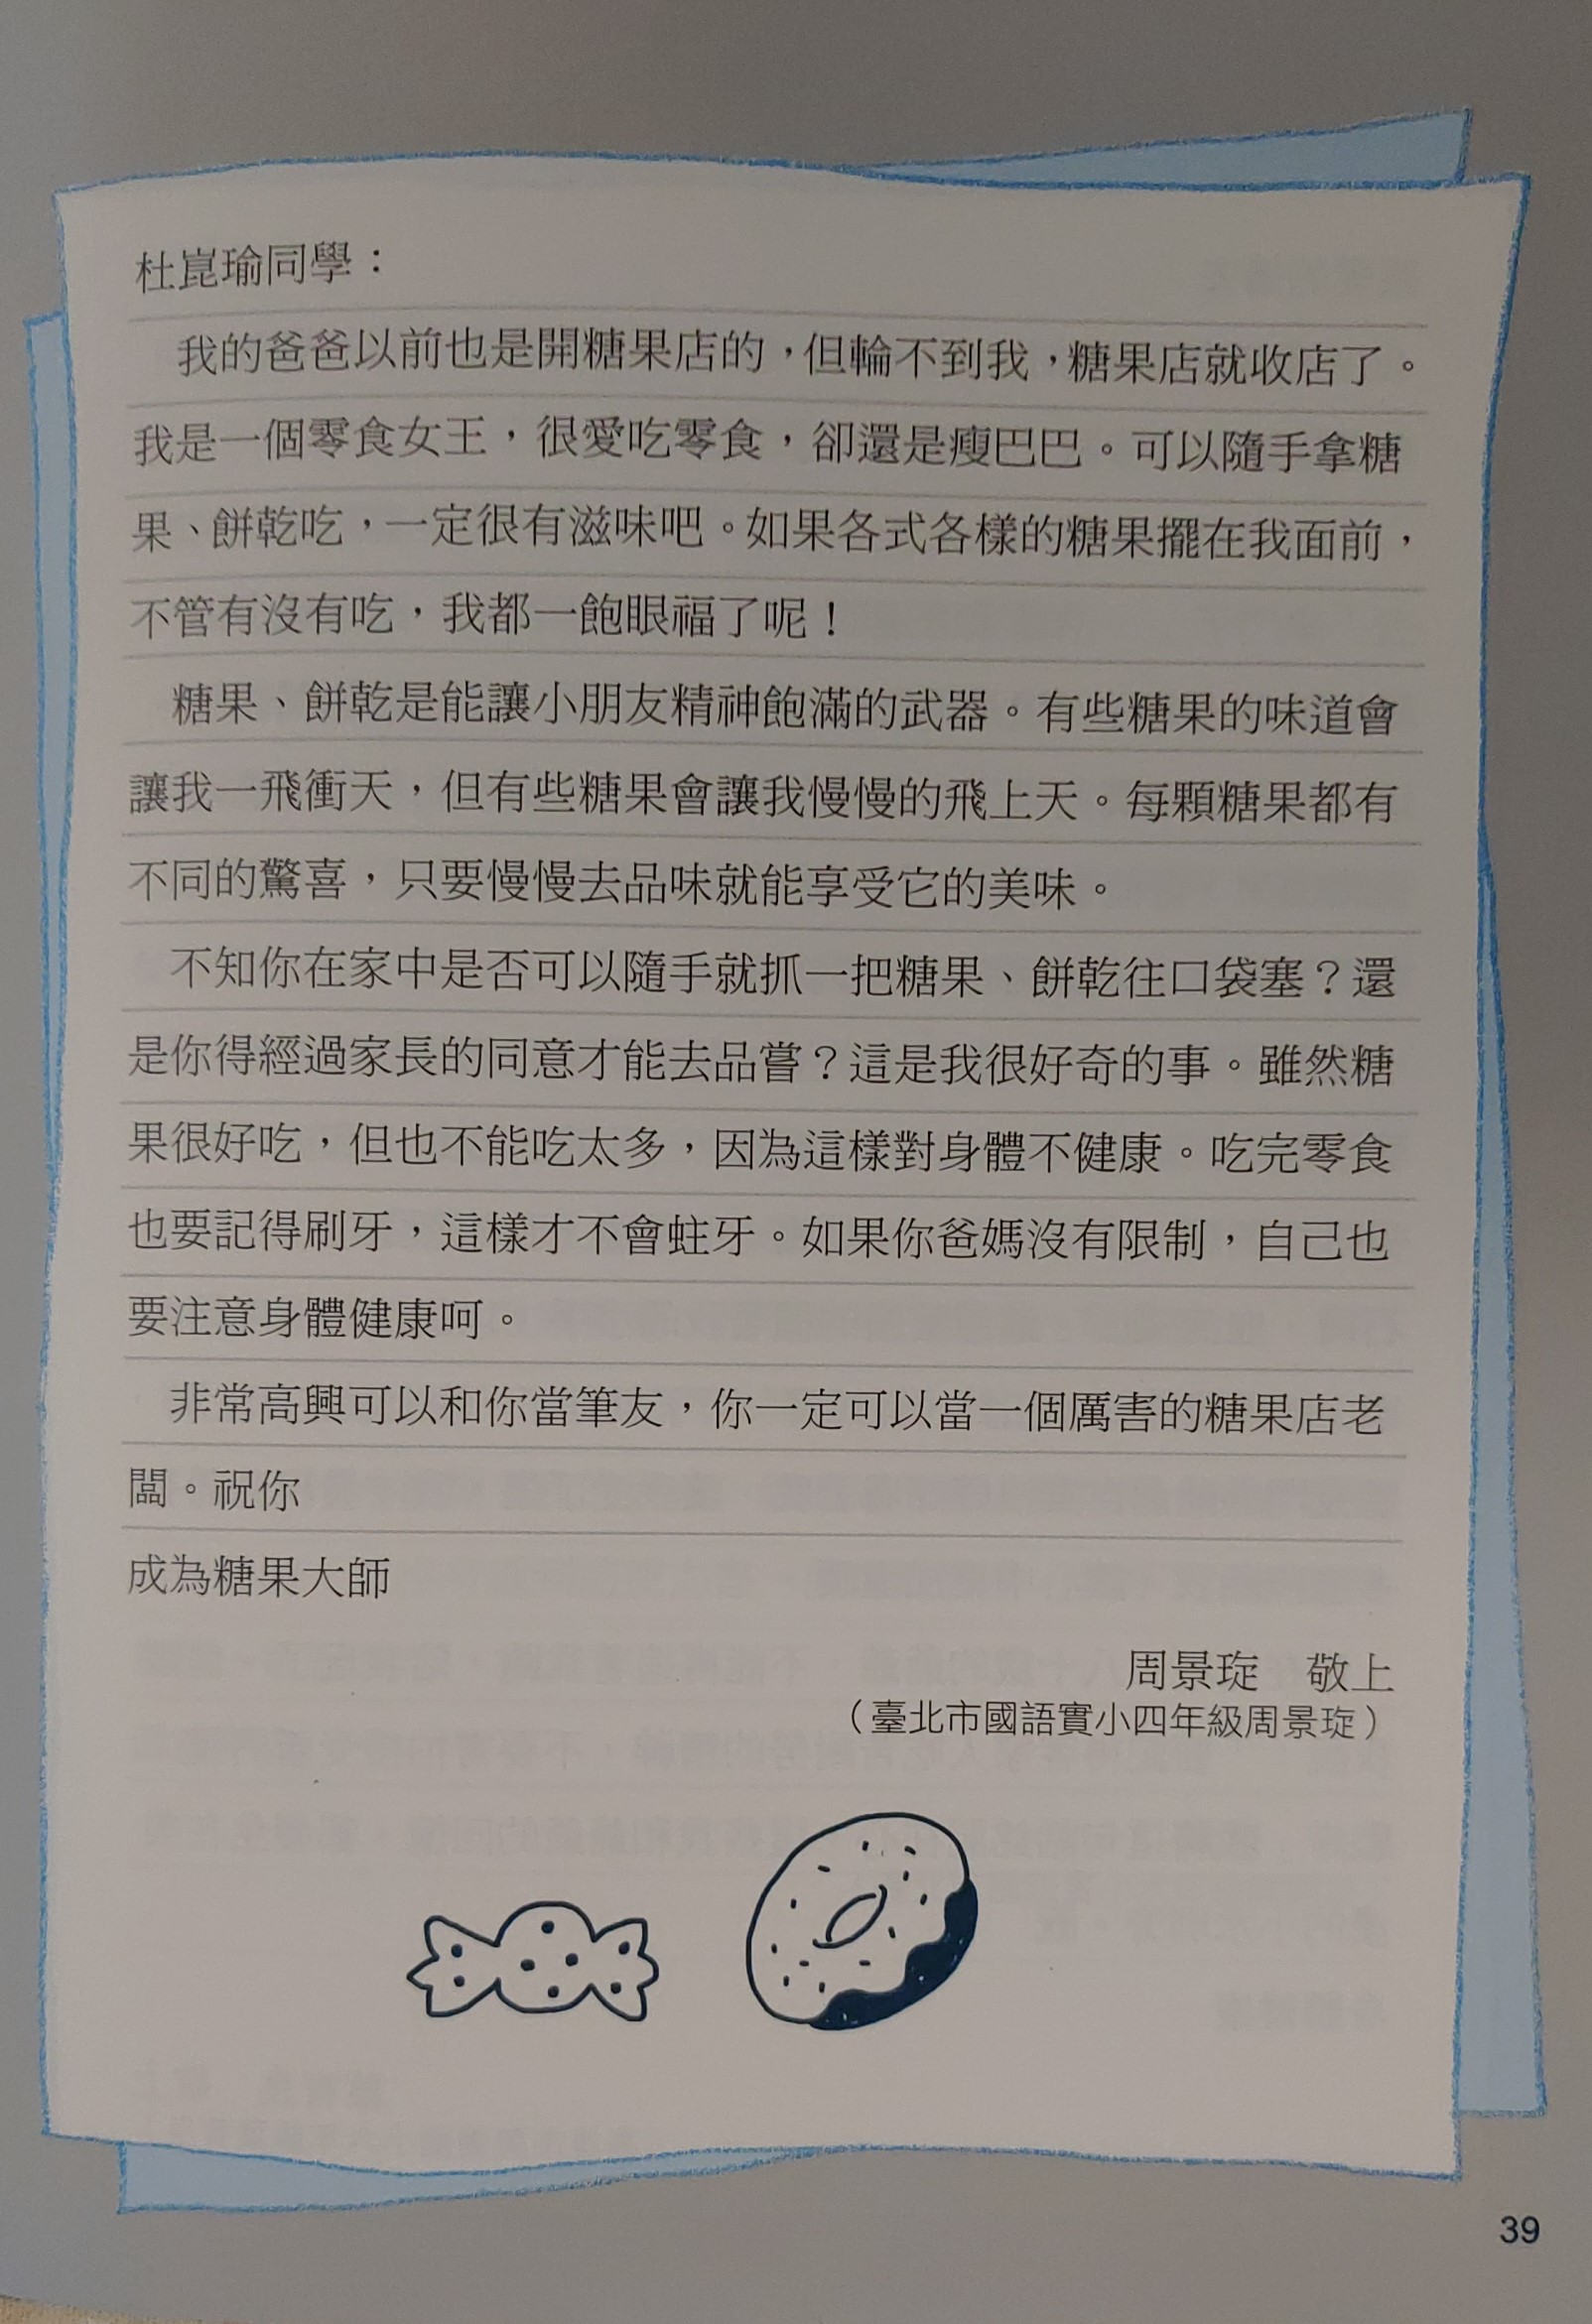 杜崑瑜同學：
我的爸爸以前也是開糖果店的，但輪不到我，糖果店就收店了。
我是一個零食女王，很愛吃零食，卻還是瘦巴巴。可以隨手拿糖
果、餅乾吃，一定很有滋味吧。如果各式各樣的糖果擺在我面前，
不管有沒有吃，我都一飽眼福了呢！
糖果、餅乾是能讓小朋友精神飽滿的武器。有些糖果的味道會
讓我一飛衝天，但有些糖果會讓我慢慢的飛上天。每顆糖果都有
不同的驚喜，只要慢慢去品味就能享受它的美味。
不知你在家中是否可以隨手就抓一把糖果、餅乾往口袋塞？還
是你得經過家長的同意才能去品嘗？這是我很好奇的事。雖然糖
果很好吃，但也不能吃太多，因為這樣對身體不健康。吃完零食
也要記得刷牙，這樣才不會蛀牙。如果你爸媽沒有限制，自己也
要注意身體健康呵。
非常高興可以和你當筆友，你一定可以當一個厲害的糖果店老
闆。祝你
成為糖果大師
周景琁　敬上
（臺北市國語實小四年級周景琁）
39